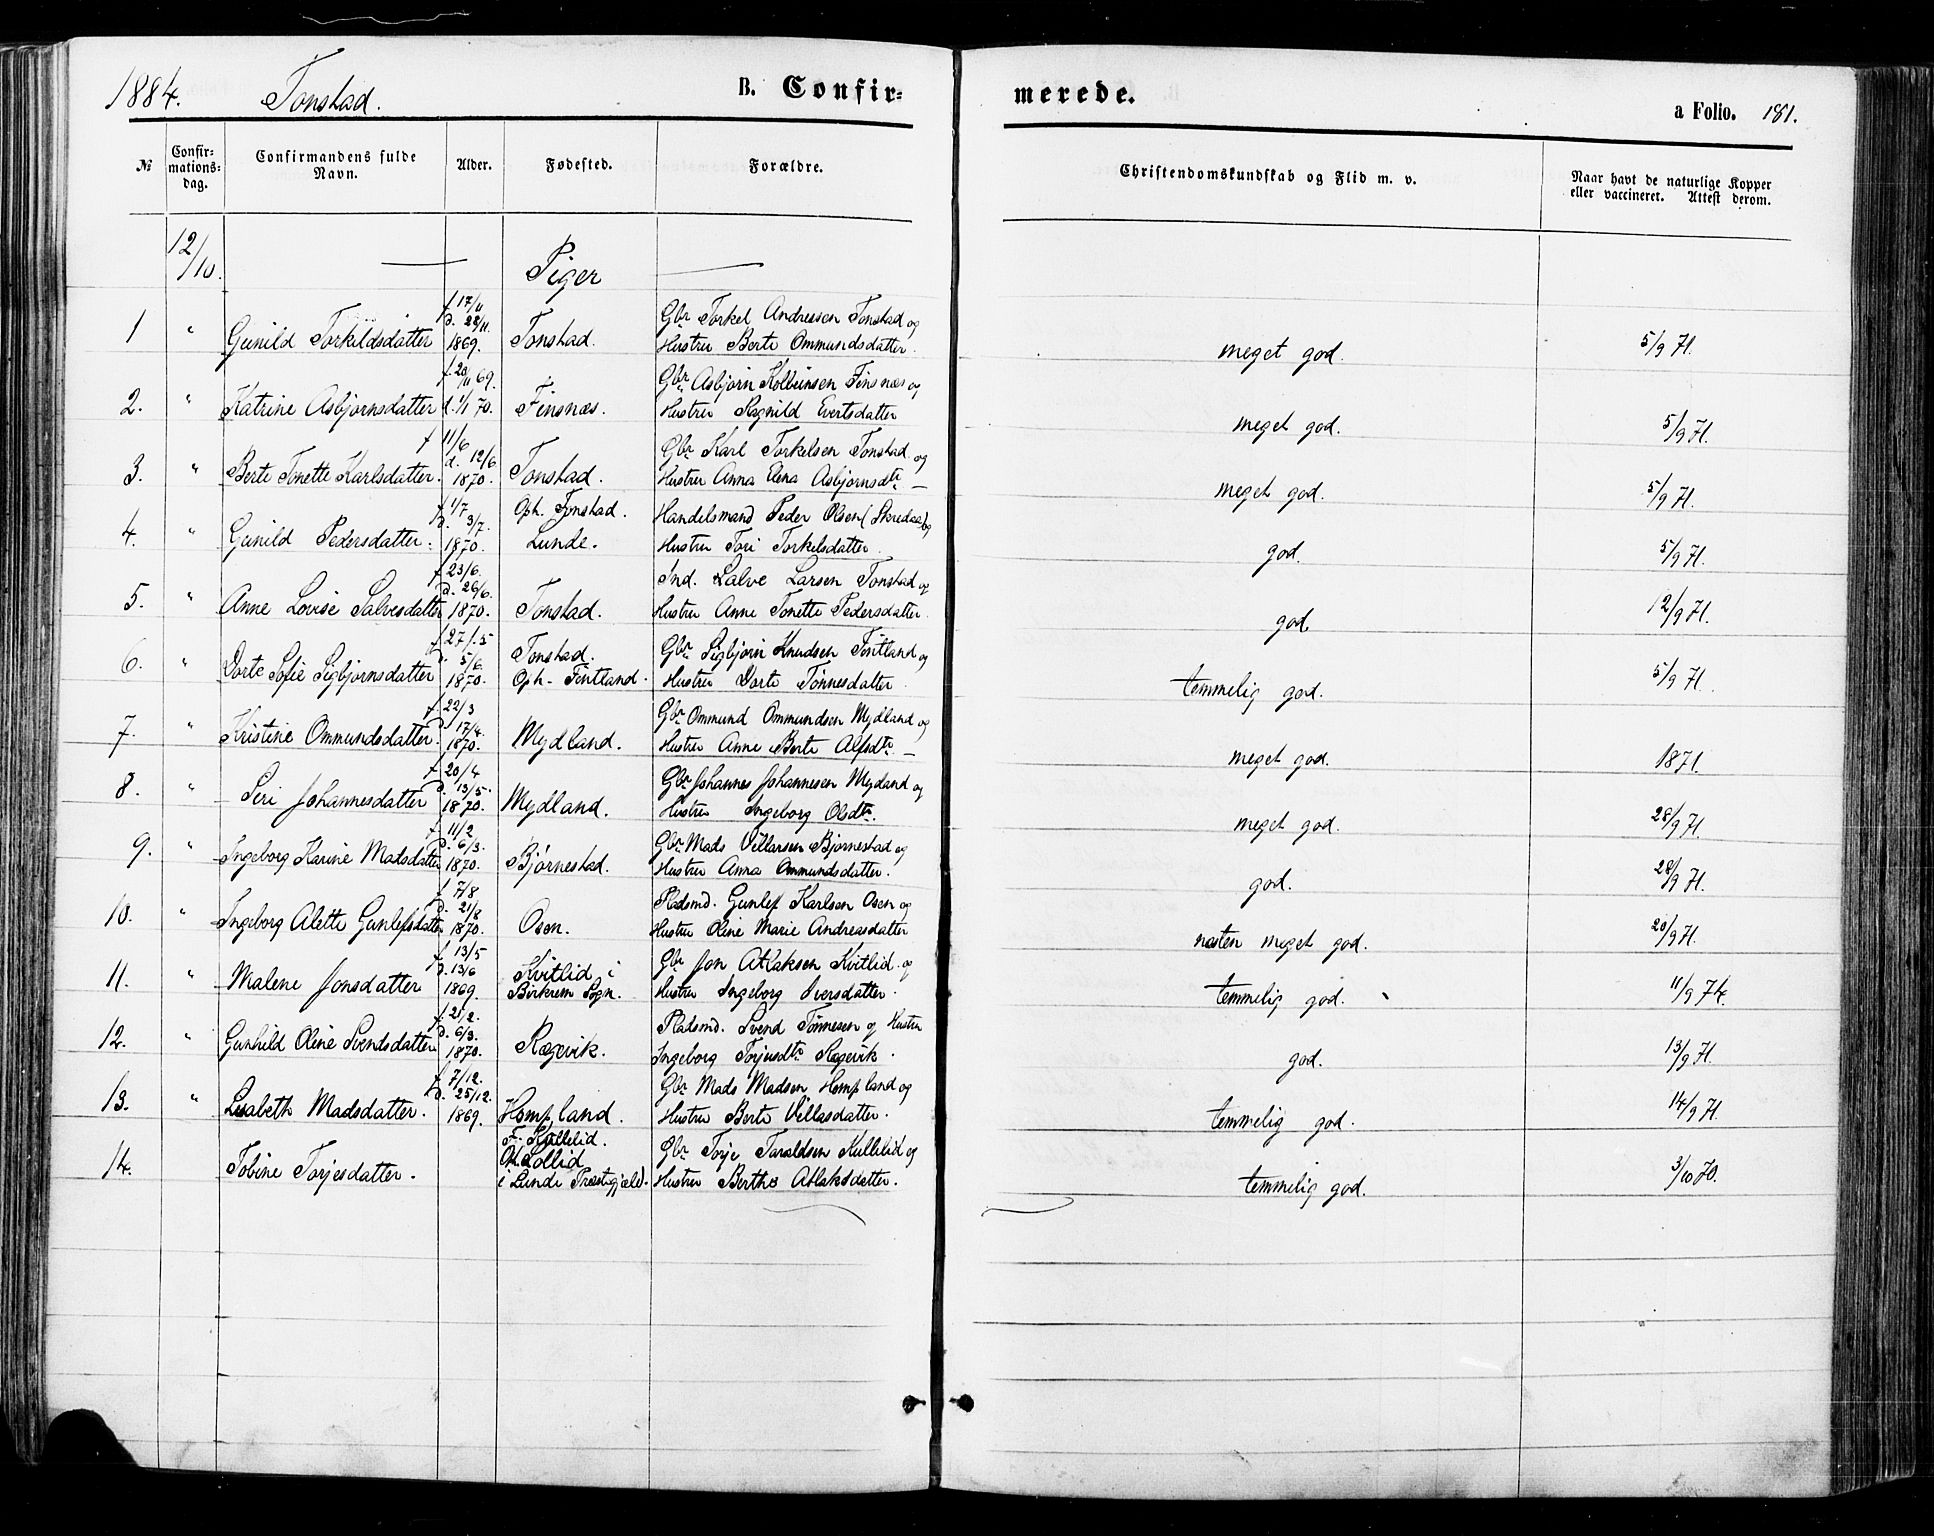 1884. Tonstad. B. Confir-
merede. a Folio. 181.
№ Confir-mations-dag. Confirmandens fulde Navn. Alder. Fødested. Forældre. Christendomskundskab og Flid m. v. Naar havt de naturlige Kopper eller vaccineret. Attest derom.
12/10. — Piger —
f 17/11 Gbr Torkel Andressen Tonstad og
d. 28/11.
1 " Gunild Torkildsdatter 1869. Tonstad. Hustru Berte Ommundsdatter. meget god. 5/9 71.
f. 20/11 69. Gbr Asbjørn Kolbeinsen Finsnæs og
2. " Katrine Asbjørnsdatter d. 1/1 70. Finsnæs. Hustru Ragnild Evertsdatter meget god. 5/9 71.
f 11/6 Gbr Karl Torkelsen Tonstad og
d. 12/6
3. " Berte Tonette Karlsdatter. 1870. Tonstad. Hustru Anna Elena Asbjørnsdtr — meget god. 5/9 71.
f 1/7 Oph. Tonstad. Handelsmand Peder Olsen (Skredaa) og
d. 3/7.
4. " Gunild Pedersdatter. 1870. Lunde. Hustru Tori Torkelsdatter. god. 5/9 71.
f 23/6. Ind. Salve Larsen Tonstad og
d. 26/6.
5. " Anne Lovise Salvesdatter 1870. Tonstad. Hustru Anne Tonette Pedersdatter. god 12/9 71.
f 27/5 Tonstad. Gbr Sigbjørn Knudsen Fintland og
d. 5/6.
6. " Dorte Sofie Sigbjørnsdatter 1870. Oph. Fintland. Hustru Dorte Tønnesdatter. temmelig god. 5/9 71.
f. 22/3 Gbr Ommund Ommundsen Mydland og
d 17/4.
7. " Kristine Ommundsdatter. 1870. Mydland. Hustru Anne Berte Alfsdtr — meget god. 1871.
f 20/4 Gbr Johannes Johannesen Mydand og
d. 13/5.
8. " Siri Johannesdatter 1870. Mydland. Hustru Ingeborg Olsdtr. meget god. 28/9 71.
f 11/2 Gbr Mads Villarsen Bjørnestad og
d. 6/3.
9. " Ingeborg Karine Madsdatter 1870. Bjørnestad. Hustru Anna Ommundsdatter. god. 28/9 71.
f 7/8 Pladsmd. Gunlef Karlsen Osen og
d. 21/8
10. " Ingeborg Alette Gunlefsdatter 1870. Osen. Hustru Oline Marie Andreasdatter næsten meget god. 20/9 71.
f 13/5 Kvitlid i Gbr Jon Atlaksen Kvitlid og
d. 13/6
11. " Malene Jonsdatter 1869. Birkrem Sogn. Hustru Ingeborg Iversdatter. temmelig god. 11/9 74.
f 21/2. Pladsmd. Svend Tønnesen og Hustru
d. 6/3.
12. " Gunhild Oline Svendsdatter 1870. Røgevik. Ingeborg Torjusdtr Røgevik. god. 13/9 71.
f 7/12. Gbr Mads Madsen Hompland og
d. 25/12.
13. " Lisabeth Madsdatter. 1869. Hompland. Hustru Berte Villasdatter. temmelig god. 14/9 71.
F. Kullelid. Gbr Torje Taraldsen Kullelid og
14. Tobine Torjesdatter. i Lunde Præstegjeld. Hustru Berthe Atlaksdatter. temmelig god. 3/10 70.